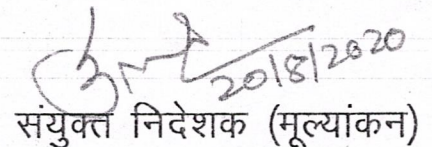 20/8/2020
संयुक्त निदेशक (मूल्यांकन)